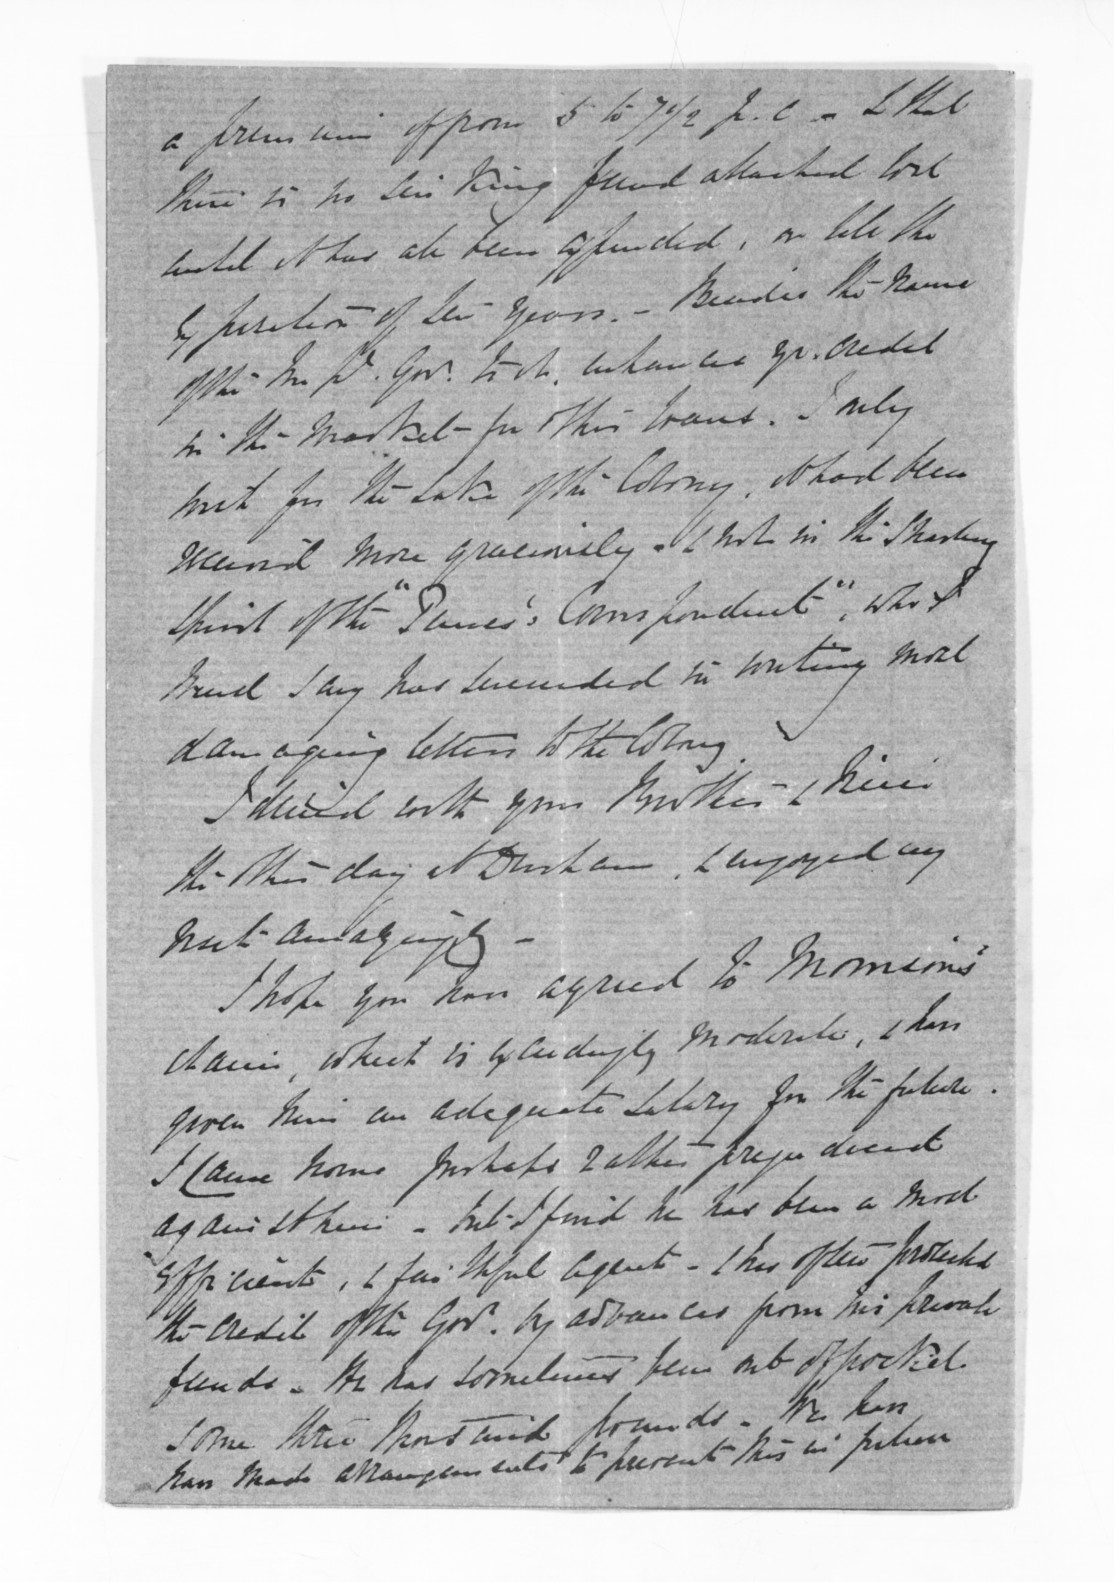 a premium of from 5 to 7 1/2 p. c - & that
there is no sinking fund attached to it
until it has all been expended, or till the
expiration of ten years. - Besides the name
of the Imp'l. Gov't. to it, enhances yr. credit
in the market for other loans. I only
wish for the sake of the Colony, it had been
received more graciously - & not in the snarling
spirit of the "Times's Correspondent", who I
must say has succeeded in writing most
damaging letters to the Colony.
I dined with your Brother &
the other day at Durham, & enjoyed my
visit amazingly -
I hope you have agreed to Morrison's
claim, which is exceedingly moderate, & have
given him an adequate salary for the future.
I came home perhaps rather prejudiced
against him - but I find he has been a most
efficient, & faithful agent - & has often protected
the credit of the Gov't. by advances from his private
funds - He has sometimes been out of pocket
some three thousand pounds - We have
have made arrangements to prevent this in future